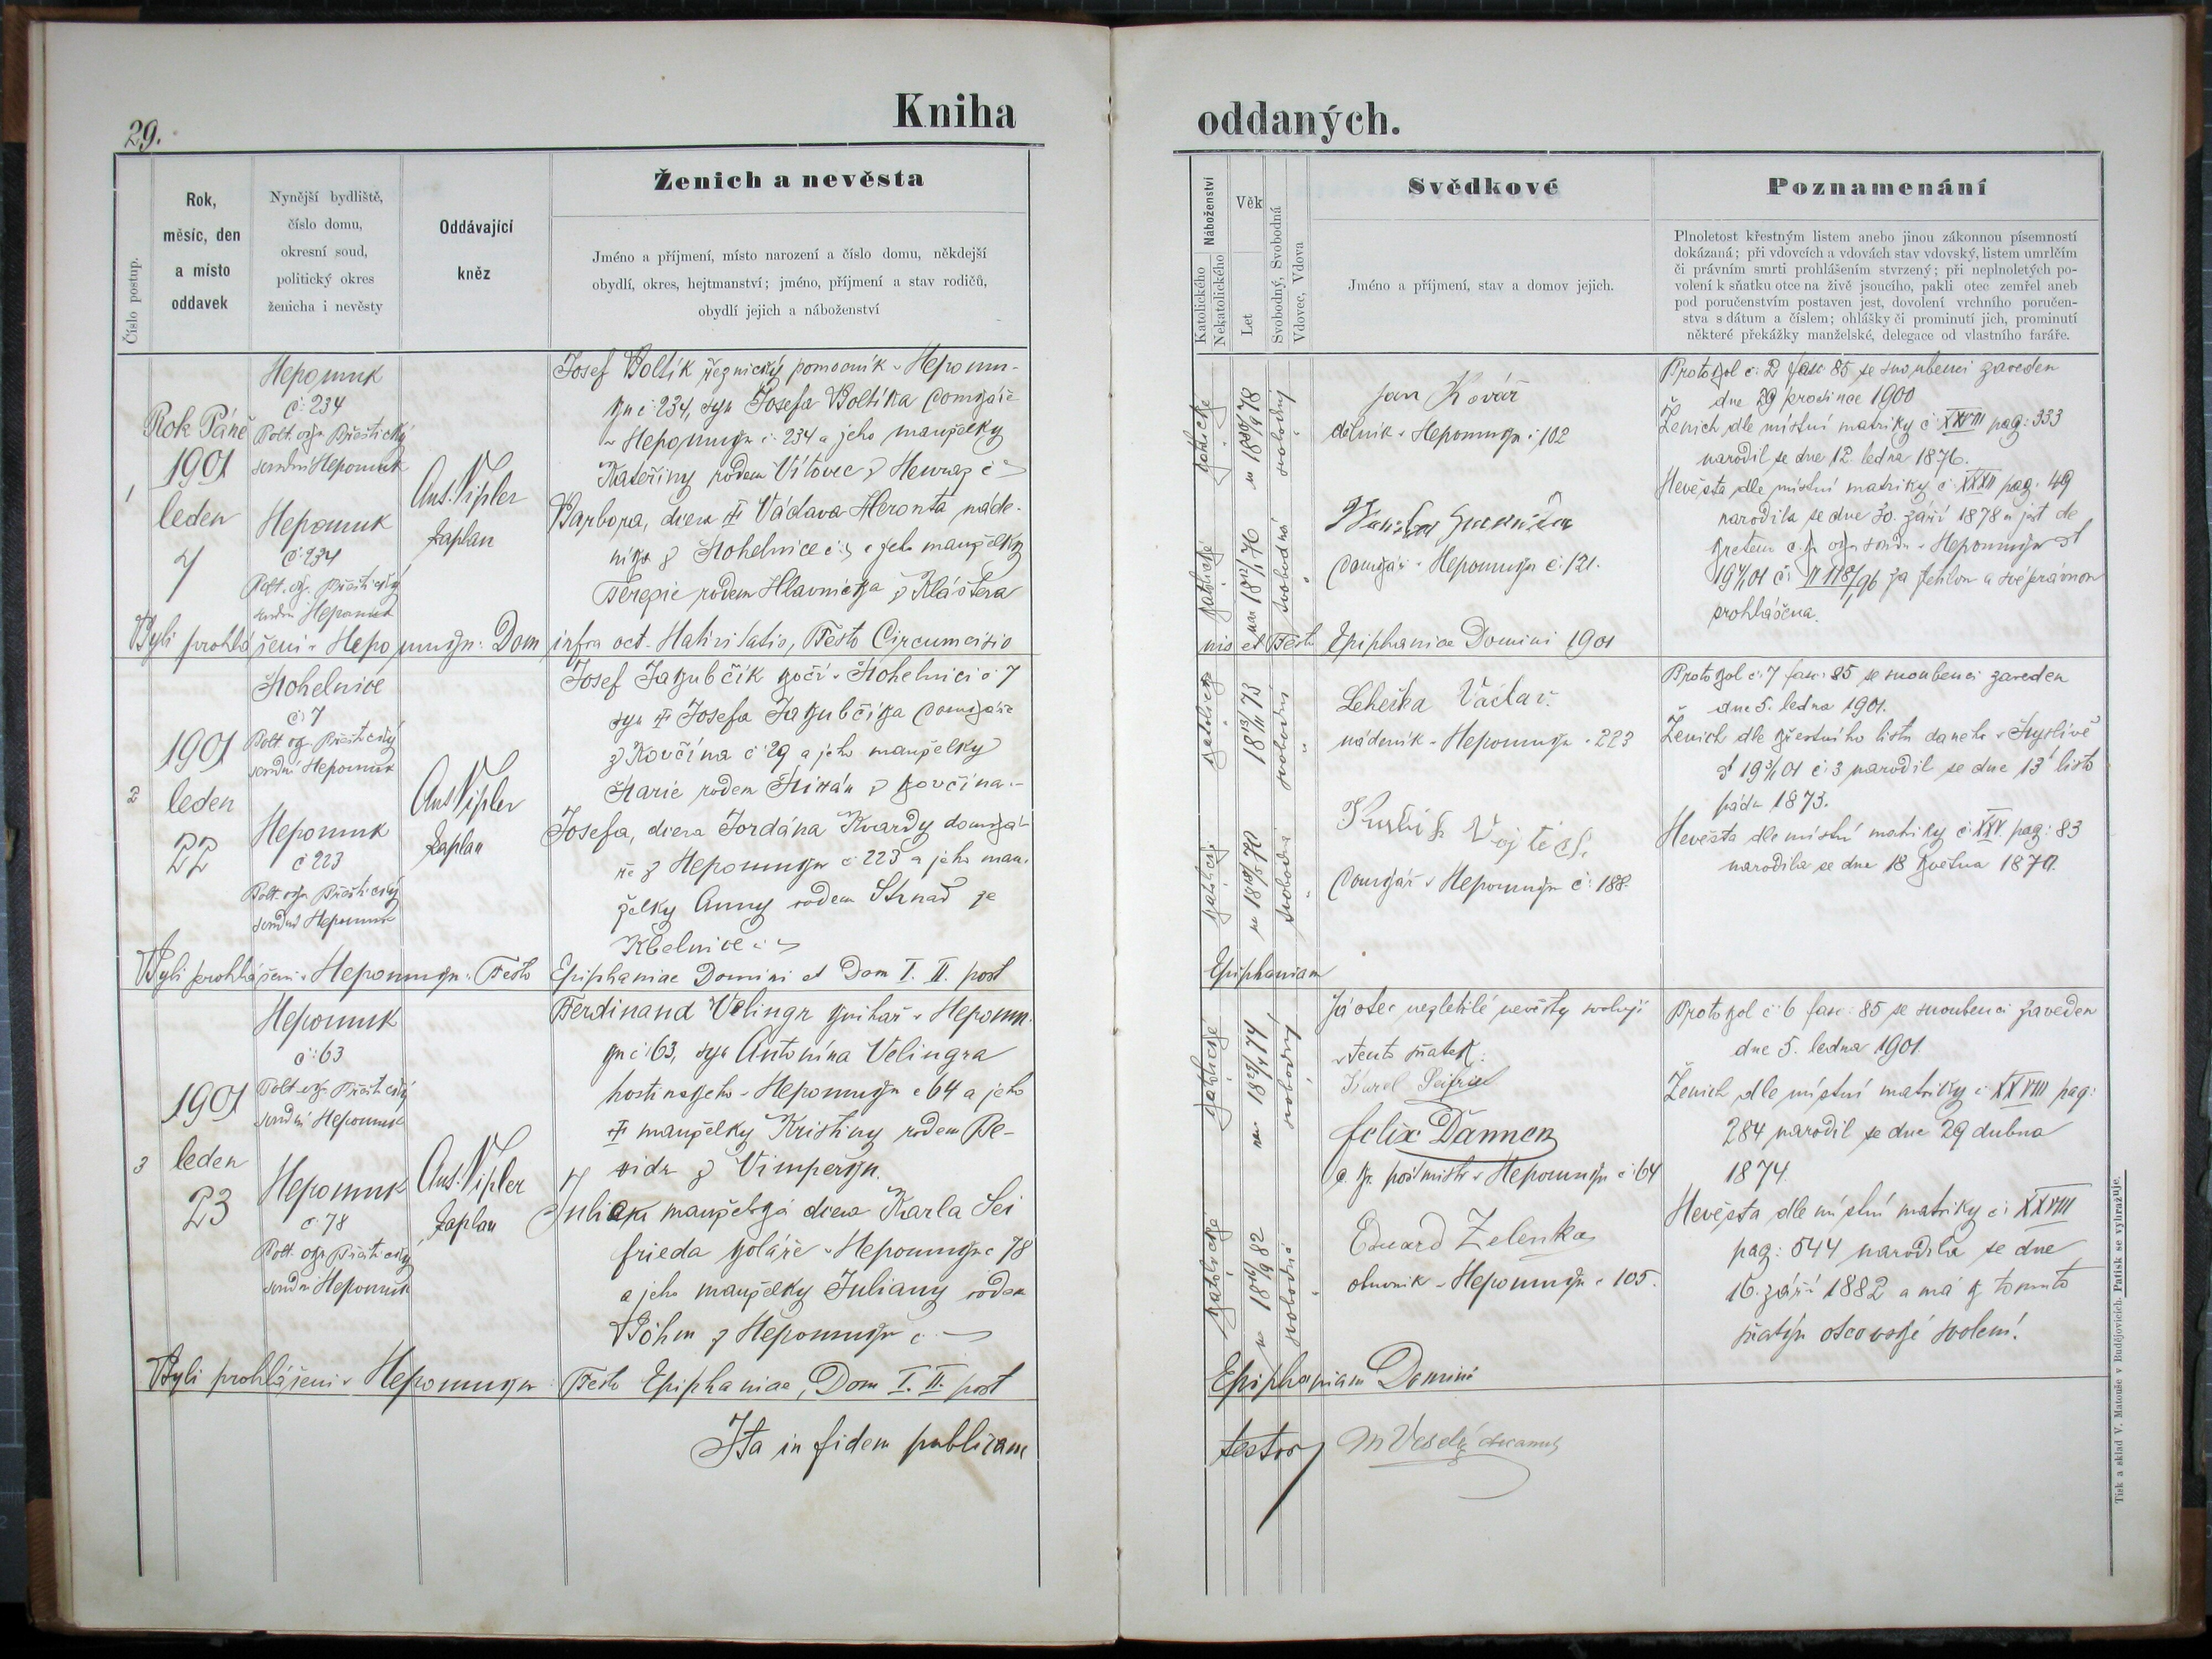 29.
Kniha oddaných.
Číslo postup.
Rok,
měsíc, den
a místo
oddavek
Nynější bydliště,
číslo domu,
okresní soud,
politický okres
ženicha i nevěsty
Oddávající
kněz
Ženich a nevěsta
Jméno a příjmení, místo narození a číslo domu, někdejší
obydlí, okres, hejtmanství; jméno, příjmení a stav rodičů,
obydlí jejich a náboženství
Náboženství
Katolického
Nekatolického
Věk
Let
Svobodný, Svobodná
Vdovec, Vdova
Svědkové
Jméno a příjmení, stav a domov jejich.
Poznamenání
Plnoletost křestným listem anebo jinou zákonnou písemností
dokázaná; při vdovcích a vdovách stav vdovský, listem umrlčím
či právním smrti prohlášením stvrzený; při neplnoletých po-
volení k sňatku otce na živě jsoucího, pakli otec zemřel aneb
pod poručenstvím postaven jest, dovolení vrchního poručen-
stva s dátum a číslem; ohlášky či prominutí jich, prominutí
některé překážky manželské, delegace od vlastního faráře.
1
Rok Páně
1901
leden
7
Nepomuk
č: 234
Polt. okr. Přeštický
soudní Nepomuk
Nepomuk
č: 234
Polt. okr. Přeštický
soudní Nepomuk
Ant. Vipler
kaplan
Josef Boltík řeznický pomocník v Nepomu-
ku č: 234, syn Josefa Boltíka domkáře
v Nepomuku č: 234 a jeho manželky
Kateřiny rodem Vítovec z
Barbora, dcera Václava Heronta náde-
níka z Mohelnice č: a jeho manželky
Terezie rodem Hlavnička z Kláštera
katolické
katolické
svobodný
svobodná
Jan Kovář
dělník v Nepomuku č: 102
domkář v Nepomuku č: 121.
Protokol č: 2 fasc: 85 se snoubenci zaveden
dne 29 prosince 1900
Ženich dle místní matriky č: XXVII pag: 333
narodil se dne 12. ledna 1876.
Nevěsta dle místní matriky č: pag: 49
narodila se dne 30. září 1878 a jest de
kretem c. k. okr. soudu v Nepomuku
za zletilou a svéprávnou
prohlášena.
Byli prohlášeni v Nepomuku: Dom infra oct. Nativitatis, Festo Circumcisionis et Festo Epiphaniae Domini 1901
2
1901
leden
22
Mohelnice
č: 7
Polt. okr. Přeštický
soudní Nepomuk
Nepomuk
č 223
Polt. okr. Přeštický
soudní Nepomuk
Ant Vipler
kaplan
Josef Jakubčík kočí v Mohelnici č: 7
syn Josefa Jakubčíka domkáře
z Kovčína č 29 a jeho manželky
Marie rodem z Kovčína.
Josefa, dcera Jordána Kvardy domká-
ře z Nepomuku č 223 a jeho man-
želky Anny rodem Strnad ze
Kbelnice č:
katolické
katolické
svobodný
svobodná
Leheška Václav.
nádeník v Nepomuku č 223
Vojtěch.
domkář v Nepomuku č: 188.
Protokol č: 7 fasc: 85 se snoubenci zaveden
dne 5. ledna 1901.
Ženich dle křestního listu daného v
č: 3 narodil se dne 13 listo
padu 1873.
Nevěsta dle místní matriky č: XXV. pag: 83
narodila se dne 18 května 1870.
Byli prohlášeni v Nepomuku: Festo Epiphaniae Domini et Dom I. II. post Epiphaniam
3
1901
leden
23
Nepomuk
č: 63
Polt. okr. Přeštický
soudní Nepomuk
Nepomuk
č. 78
Polt. okr. Přeštický
soudní Nepomuk
Ant. Vipler
kaplan
Ferdinand Velingr knihař v Nepomu-
ku č: 63, syn Antonína Velingra
hostinského v Nepomuku č 64 a jeho
manželky Kristiny rodem
z Vimperka.
Juliana manželská dcera Karla Sei
frieda koláře v Nepomuku č 78
a jeho manželky Juliany rodem
Böhm z Nepomuku č.
katolické
katolické
svobodný
svobodná
Já otec nezletilé nevěsty svoluji
v tento sňatek.
Karel Seifried
Felix Dannen
c. k. poštmistr v Nepomuku č: 64
Eduard Zelenka
obuvník v Nepomuku č 105.
Protokol č: 6 fasc: 85 se snoubenci zaveden
dne 5. ledna 1901.
Ženich dle místní matriky č: XXVIII pag:
284 narodil se dne 29 dubna
1874.
Nevěsta dle místní matriky č: XXVIII
pag: 544 narodila se dne
16. září 1882 a má k tomuto
sňatku otcovské svolení.
Byli prohlášeni v Nepomuku: Festo Epiphaniae, Dom I. II. post Epiphaniam Domini
Ita in fidem publicam testor
Tisk a sklad V. Matouše v Budějovicích. Patisk se vyhražuje.